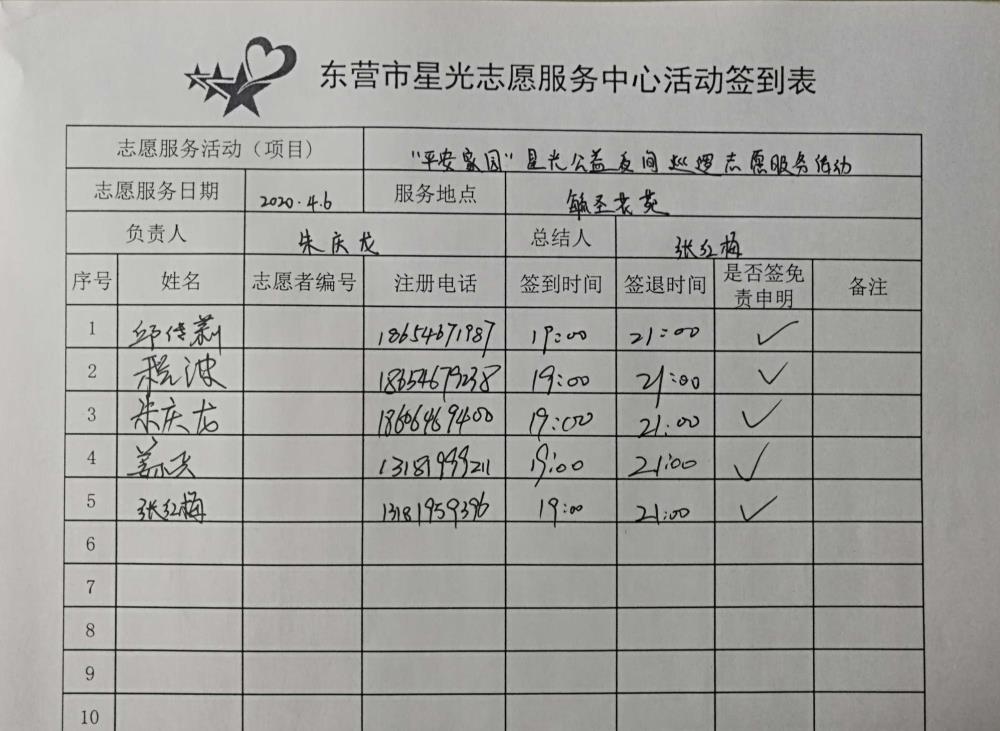 东营市星光志愿服务中心活动签到表
志愿服务活动（项目） "平安家园"星光公益夜间巡逻志愿服务活动
志愿服务日期 2020.4.6 服务地点 毓圣茗苑
负责人 朱庆龙 总结人 张红梅
序号 姓名 志愿者编号 注册电话 签到时间 签退时间 是否签免责申明 备注
1 邱传莉 18654671987 19:00 21:00 ✓
2 程波 18654679238 19:00 21:00 ✓
3 朱庆龙 18606469400 19:00 21:00 ✓
4 13181999211 19:00 21:00 ✓
5 张红梅 13181959396 19:00 21:00 ✓
6
7
8
9
10